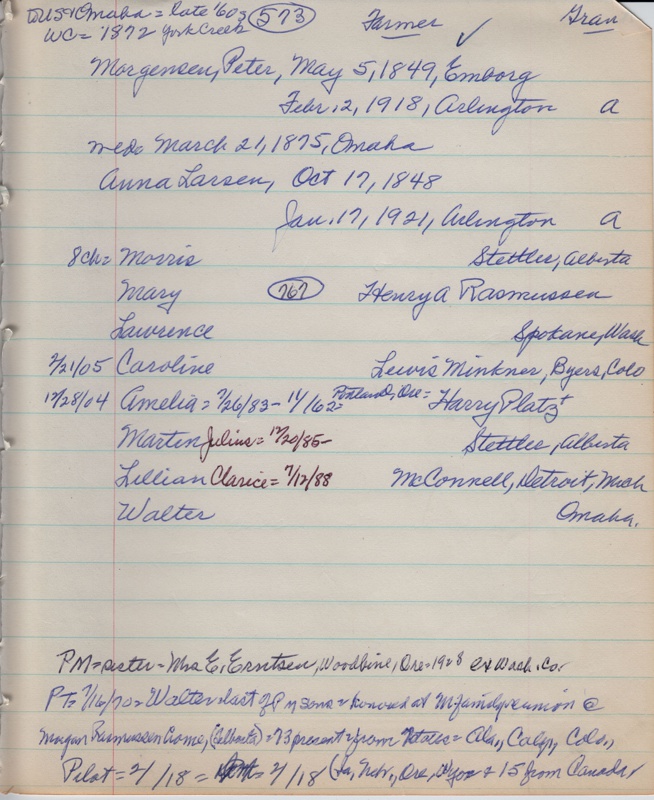 to US + Omaha = late '60s (573) Farmer Gran
WC = 1872 York Creek ✓
Morgensen, Peter, May 5, 1849, Emborg
Febr. 2, 1918, Arlington A
wed. March 21, 1875, Omaha
Anna Larsen, Oct 17, 1848
Jan. 17, 1921, Arlington A
8 ch = Morris Stettler, Alberta
Mary (767) Henry A Rasmussen
Lawrence Spokane, Wash
2/21/05 Caroline Lewis Minkner, Byers, Colo
12/28/04 Amelia = 7/26/83 - Portland, Ore = Harry Platz+
Marten Julius = 12/20/85 - Stettler, Alberta
Lillian Clarice = 7/12/88 McConnell, Detroit, Mich
Walter Omaha.
PM = sister = Mrs E. Erntsen, Woodbine, Ore = 1928 ex Wash. Co.
PT = 7/16/70 = Walter last of PM sons = honored at M family reunion @
Morgan Rasmussen home, (Alberta) = 73 present = from states = Ala, Calif, Colo,
Pilot = 2/18 = 2/18 (Ia, Nebr, Ore, Wyo + 15 from Canada)